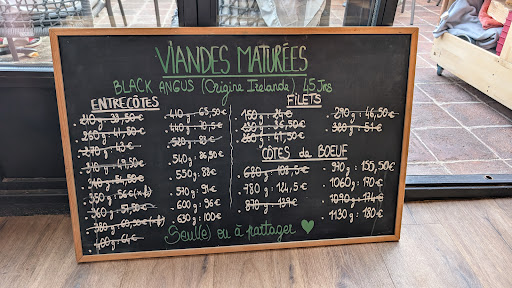 VIANDES MATURÉES
BLACK ANGUS (Origine Irelande) 45 Jrs
ENTRECÔTES
260g : 41,50€
270g : 43€
310g : 49,50€
350g : 56€
400g : 64€
410g : 65,50€
440g : 70,5€
540g : 86,50€
550g : 88€
570g : 91€
600g : 96€
630g : 100€
FILETS
150g : 24€
260g : 41,50€
290g : 46,50€
320g : 51€
CÔTES de BOEUF
680g : 108,5€
780g : 124,5€
870g : 139€
970g : 155,50€
1060g : 170€
1090g : 174€
1130g : 180€
Seul(e) ou à partager